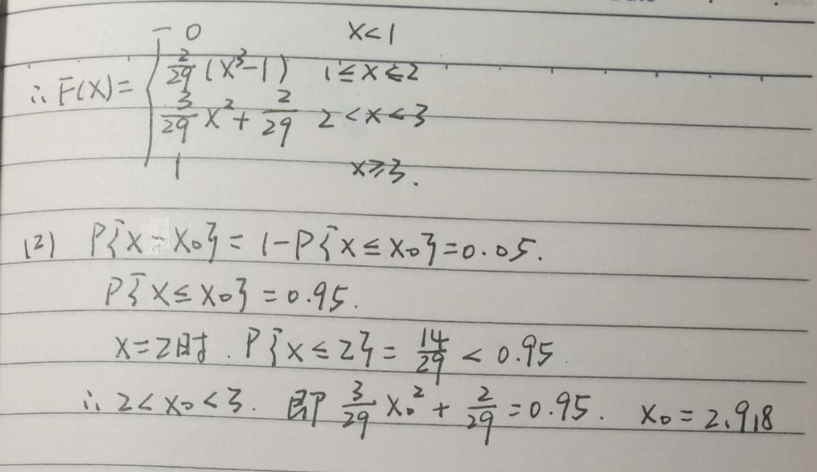 0 x<1
2/29 (x³-1) 1≤x≤2
∴F(x)=
3/29 x²+2/29 2<x<3
1 x≥3.
(2) P{x-x₀}=1-P{x≤x₀}=0.05.
P{x≤x₀}=0.95.
x=2时.P{x≤2}=14/29<0.95
∴2<x₀<3. 即 3/29 x₀²+2/29=0.95. x₀=2.918